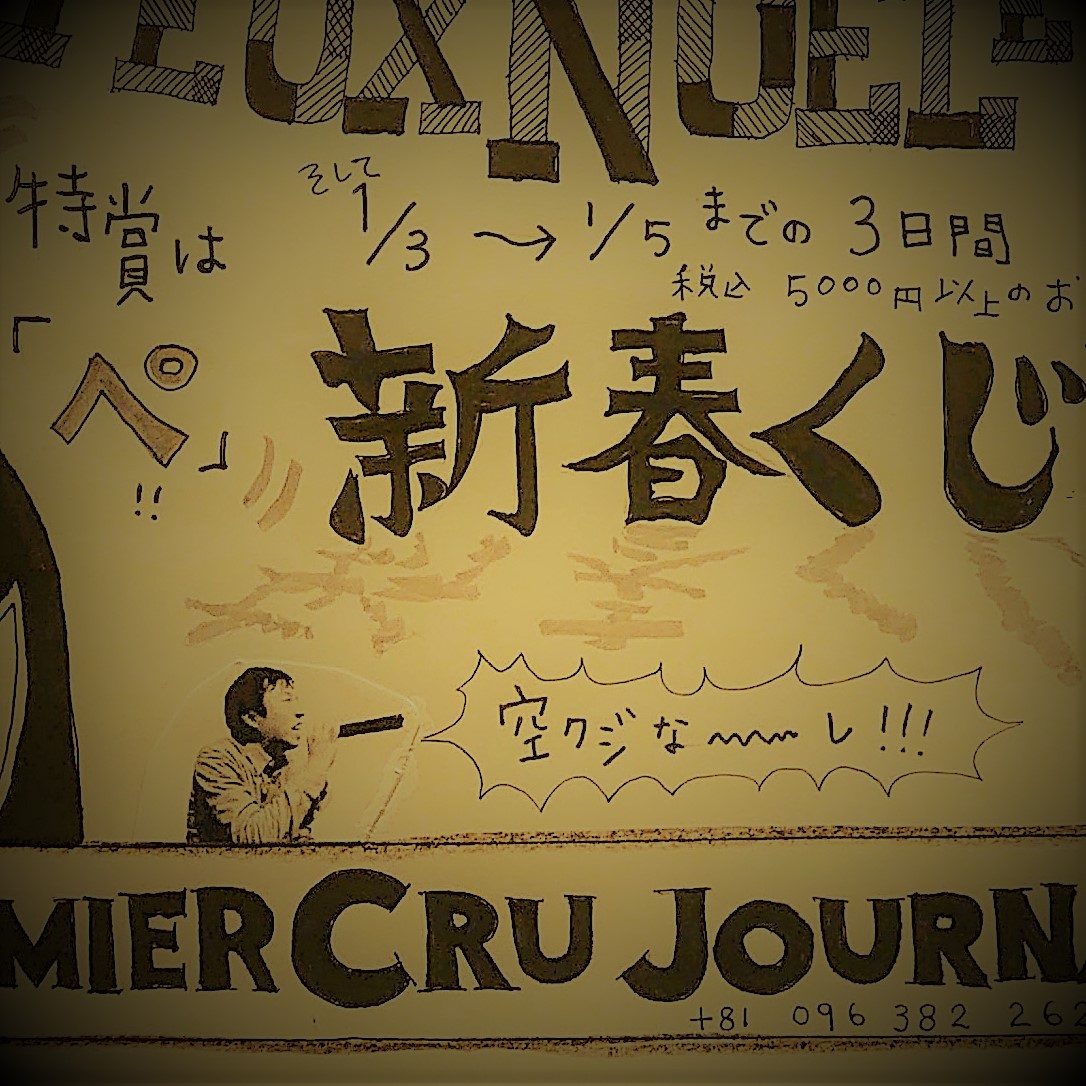 EUX NOEL
特賞は
「ペ」
!!
そして
1/3 → 1/5 までの 3日間
税込 5000円以上のお
新春くじ
空クジな〜〜し!!!
MIER CRU JOURNA
+81 096 382 262